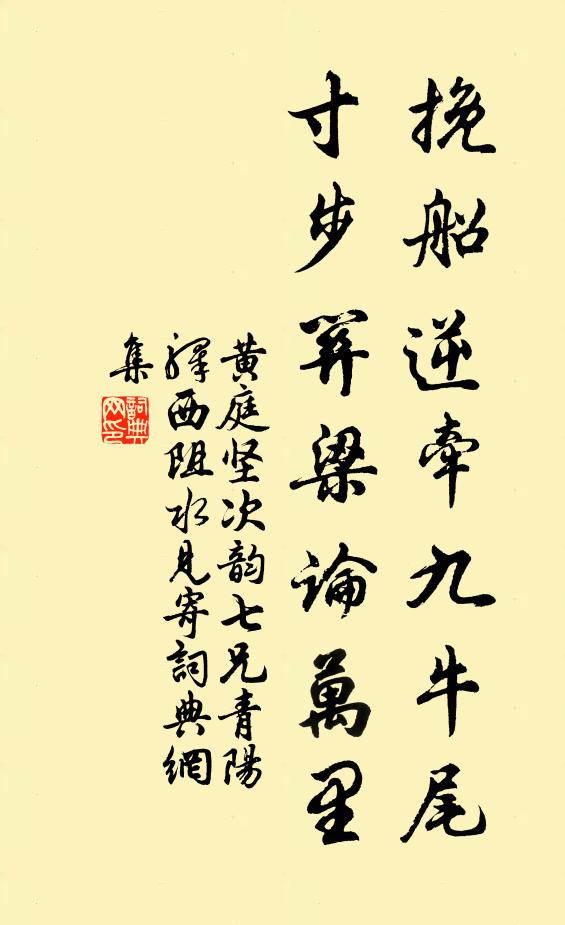 挽船逆牽九牛尾
寸步關梁論萬里
黄庭坚次韵七兄青陽
驛西阻水見寄詞典網
集
詞典
网印